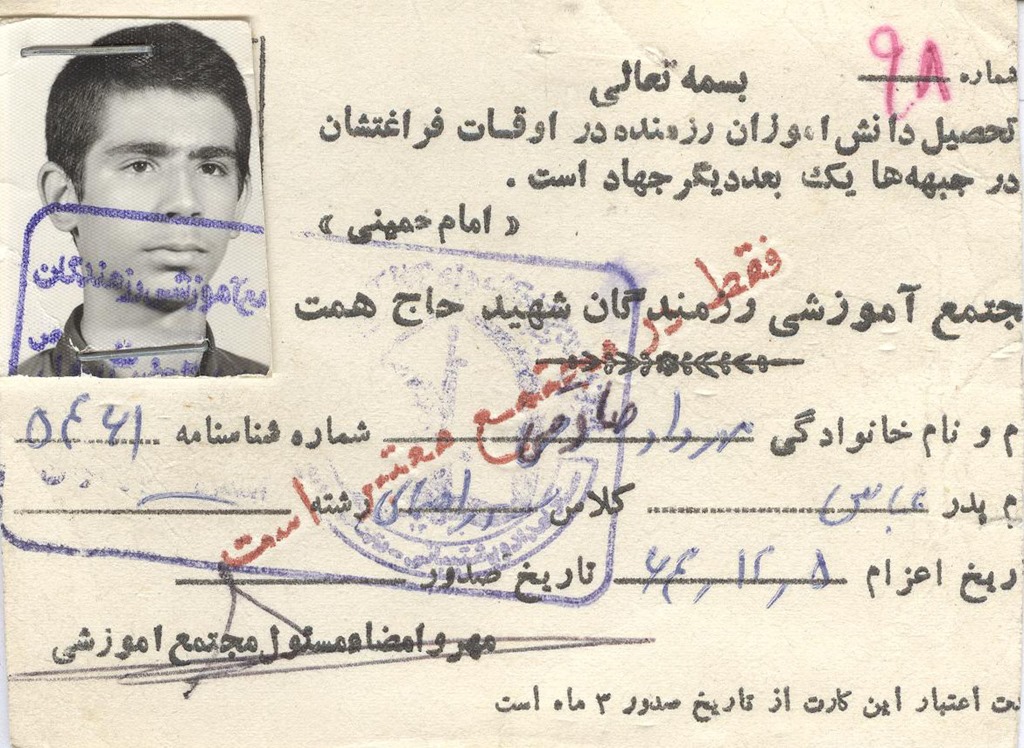 شماره ۹۸
بسمه تعالی
تحصیل دانش اموزان رزمنده در اوقات فراغتشان
در جبهه‌ها یک بعد دیگر جهاد است .
« امام خمینی »
جتمع آموزشی رزمندگان شهید حاج همت
فقط در مجتمع معتبر است
م و نام خانوادگی مهرداد شماره شناسنامه ۵۴۶۱
م پدر عباس کلاس رشته
ریخ اعزام ۶۴,۱۲,۸ تاریخ صدور
مهر و امضاء مسئول مجتمع اموزشی
ت اعتبار این کارت از تاریخ صدور ۳ ماه است